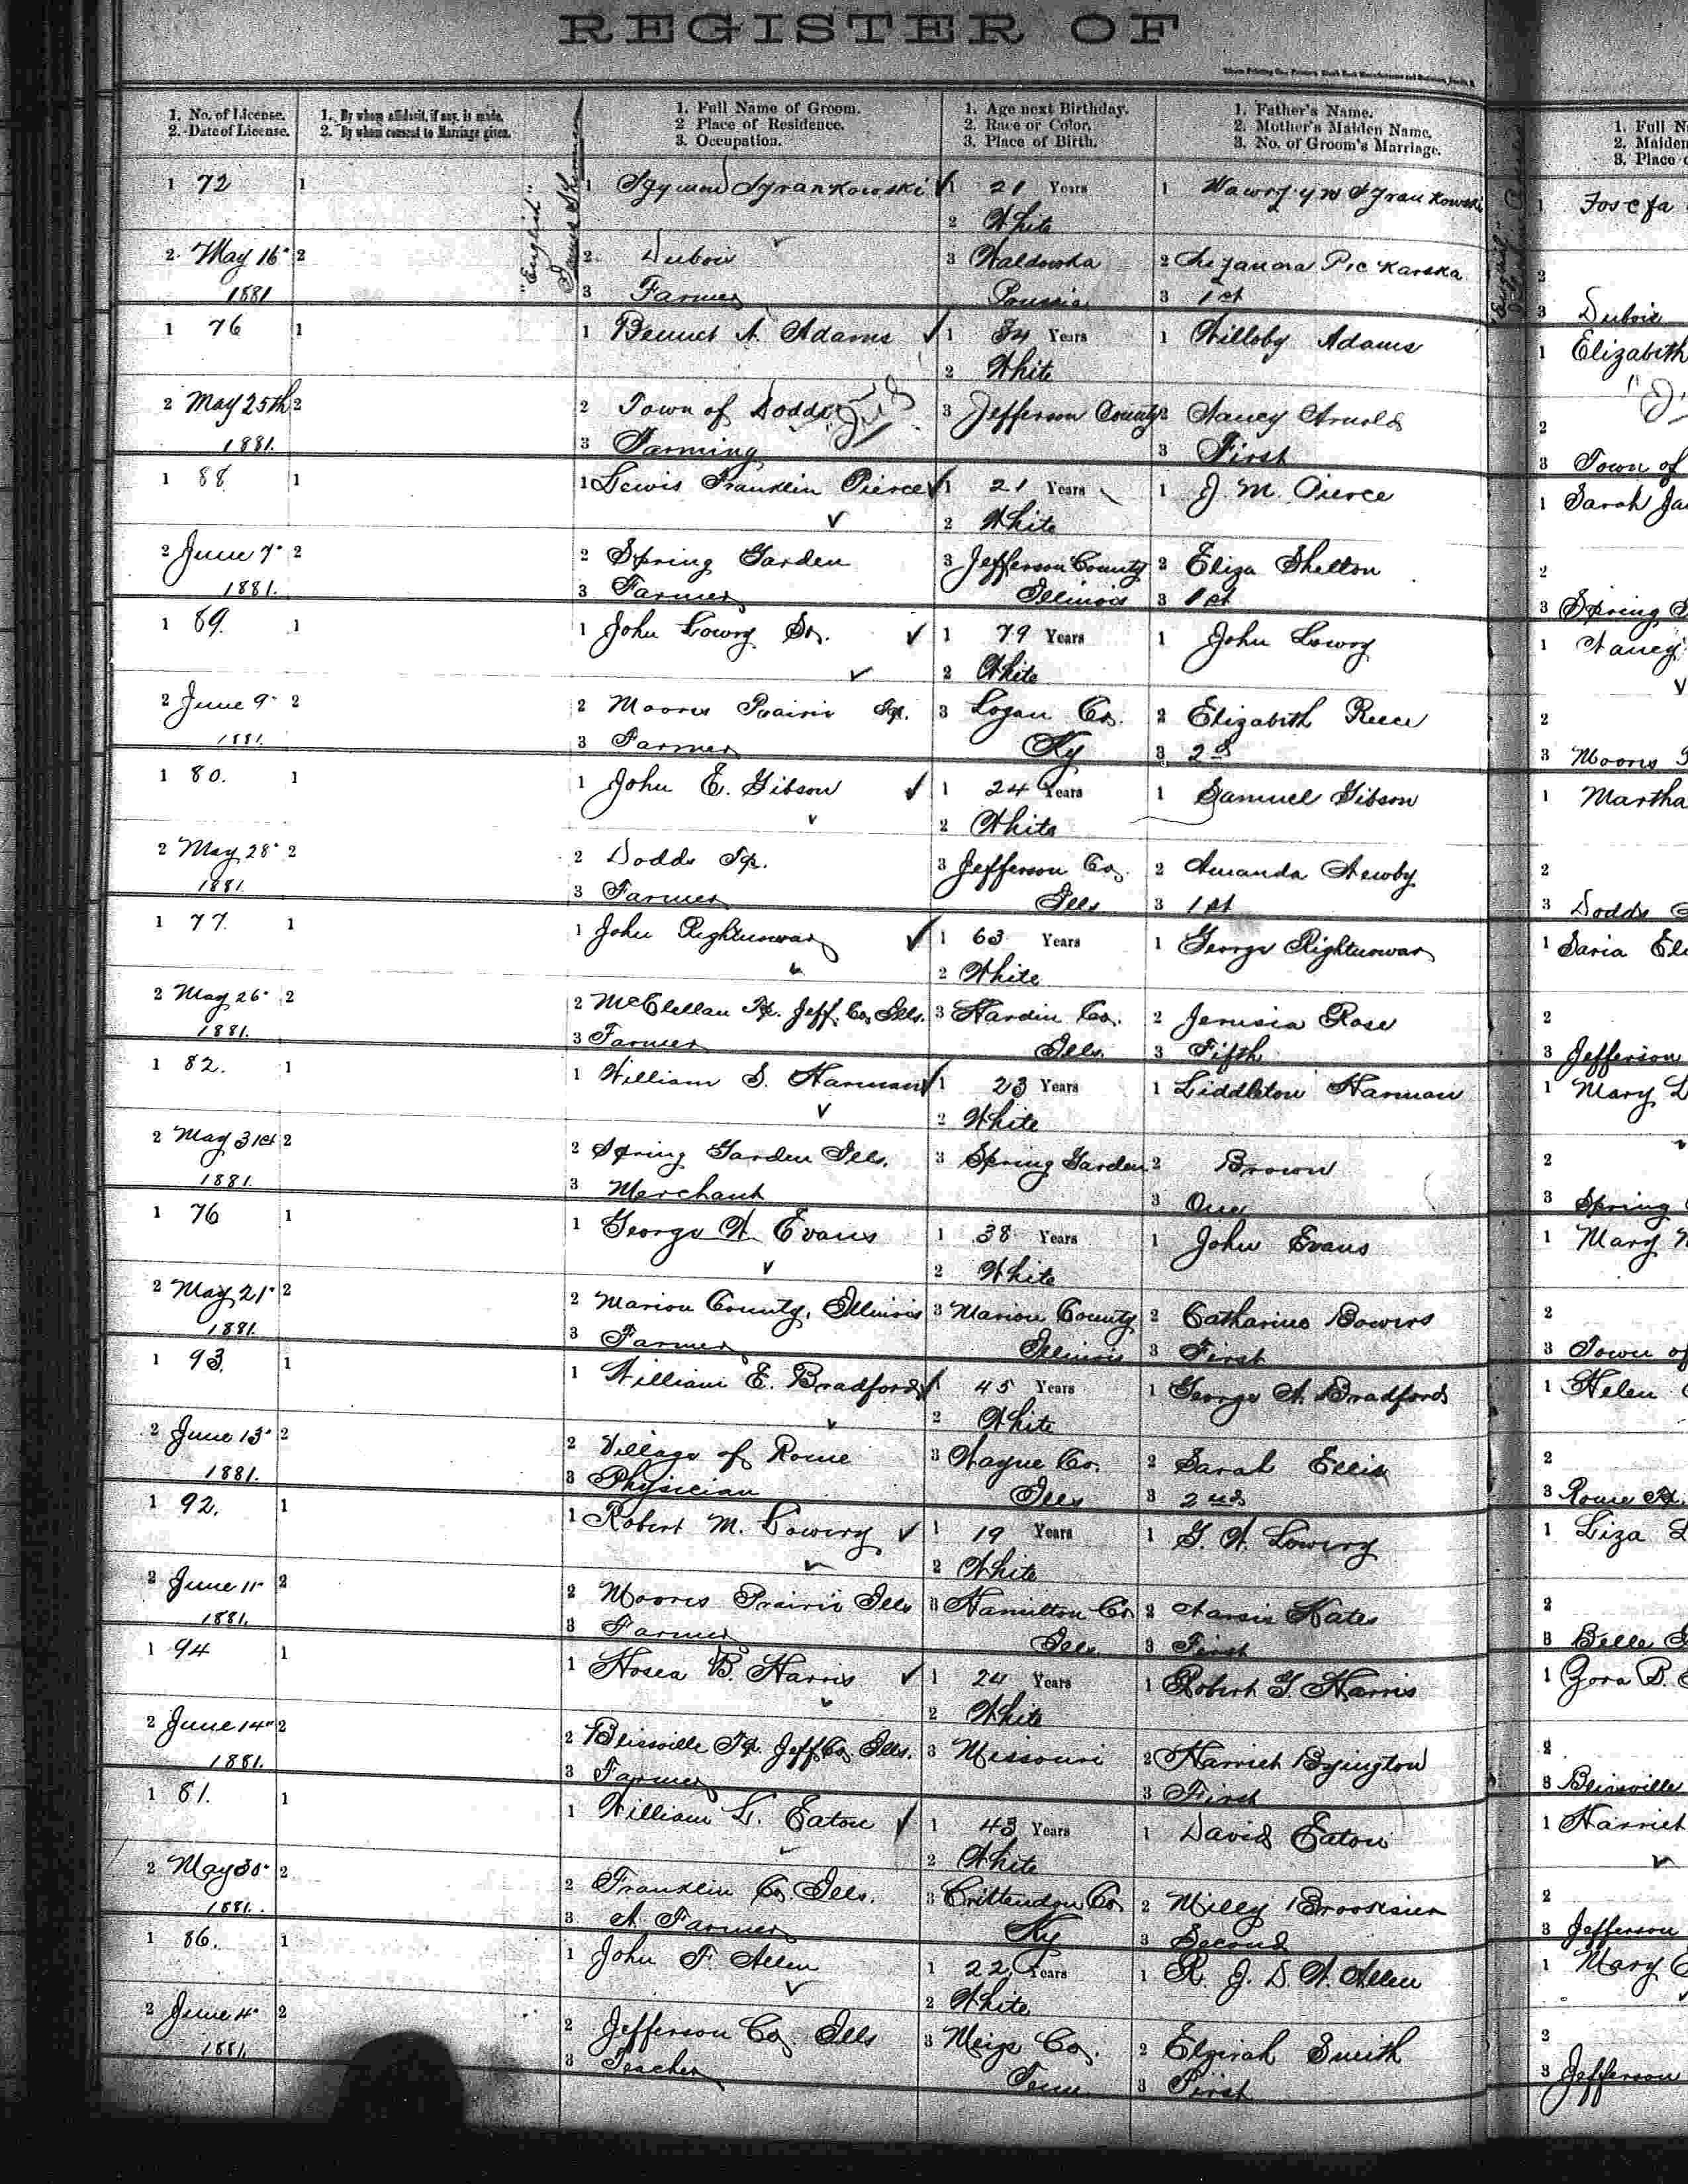 REGISTER OF
1. No. of License.
2. Date of License.
1. By whom affidavit, if any, is made.
2. By whom consent to Marriage given.
1. Full Name of Groom.
2 Place of Residence.
3. Occupation.
1. Age next Birthday.
2. Race or Color.
3. Place of Birth.
1. Father's Name.
2. Mother's Maiden Name.
3. No. of Groom's Marriage.
1. Full N
2. Maiden
3. Place o
"English"
1 72 1 1 1 21 Years 1 1 Josefa
2 White
2 May 16" 2 2 Dubois 3 2 2
1881 3 Farmer 3 1st 3 Dubois
1 76 1 1 Bennet A. Adams 1 34 Years 1 Willoby Adams 1 Elizabeth
2 White
2 May 25th 2 2 Town of Dodds 3 Jefferson County 2 Nancy Arnold 2
1881. 3 Farming 3 First 3 Town of
1 88 1 1 Lewis Franklin Pierce 1 21 Years 1 J. M. Pierce 1 Sarah Ja
2 White
2 June 7" 2 2 Spring Garden 3 Jefferson County 2 Eliza Shelton 2
1881. 3 Farmer Illinois 3 1st 3 Spring
1 89. 1 1 John Lowry Sr. 1 79 Years 1 John Lowry 1 Nancy
2 White
2 June 9" 2 2 Moores Prairie Tp. 3 Logan Co. 2 Elizabeth Reece 2
1881. 3 Farmer Ky 3 2d 3 Moores
1 80. 1 1 John E. Gibson 1 24 Years 1 Samuel Gibson 1 Martha
2 White
2 May 28" 2 2 Dodds Tp. 3 Jefferson Co. 2 Amanda Newby 2
1881. 3 Farmer Ills 3 1st 3 Dodds
1 77. 1 1 John Rightnowar 1 63 Years 1 George Rightnowar 1 Saria Eli
2 White
2 May 26" 2 2 McClellan Tp. Jeff. Co. Ills. 3 Hardin Co. 2 Jerusia Rose 2
1881. 3 Farmer Ills. 3 Fifth 3 Jefferson
1 82. 1 1 William S. Harman 1 23 Years 1 Liddleton Harman 1 Mary L
2 White
2 May 31st 2 2 Spring Garden Ills. 3 Spring Garden 2 Brown 2
1881. 3 Merchant 3 One 3 Spring
1 76 1 1 George W. Evans 1 38 Years 1 John Evans 1 Mary
2 White
2 May 21" 2 2 Marion County, Illinois 3 Marion County 2 Catharine Bowers 2
1881. 3 Farmer Illinois 3 First 3 Town of
1 93. 1 1 William E. Bradford 1 45 Years 1 George A. Bradford 1 Helen
2 White
2 June 13" 2 2 Village of Rome 3 Wayne Co. 2 Sarah Ellis 2
1881. 3 Physician Ills 3 2nd 3 Rome Tp.
1 92. 1 1 Robert M. Lowery 1 19 Years 1 G. W. Lowery 1 Liza
2 White
2 June 11" 2 2 Moores Prairie Ills 3 Hamilton Co 2 Narsis Hates 2
1881. 3 Farmer Ills. 3 First 3 Belle
1 94 1 1 Hosea B. Harris 1 24 Years 1 Robert G. Harris 1 Zora B.
2 White
2 June 14" 2 2 Blissville Tp. Jeff Co. Ills. 3 Missouri 2 Harriet Byington 2
1881. 3 Farmer 3 First 3 Blissville
1 81. 1 1 William L. Eaton 1 43 Years 1 David Eaton 1 Harriet
2 White
2 May 30" 2 2 Franklin Co. Ills. 3 Crittendon Co 2 Milly 2
1881. 3 A. Farmer Ky 3 Second 3 Jefferson
1 86. 1 1 John F. Allen 1 22 Years 1 R. J. D. W. Allen 1 Mary
2 White
2 June 4" 2 2 Jefferson Co. Ills 3 Meigs Co. 2 Elzirah Smith 2
1881. 3 Teacher Tenn 3 First 3 Jefferson